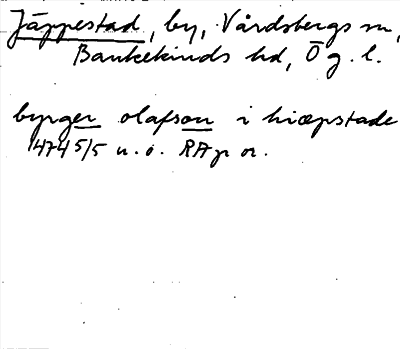 Jäppestad, by, Vårdsbergs sn,
Bankekinds hd, Ög. l.
byrger olafson i hiæpstade
1474 5/5 u. o. RAp or.